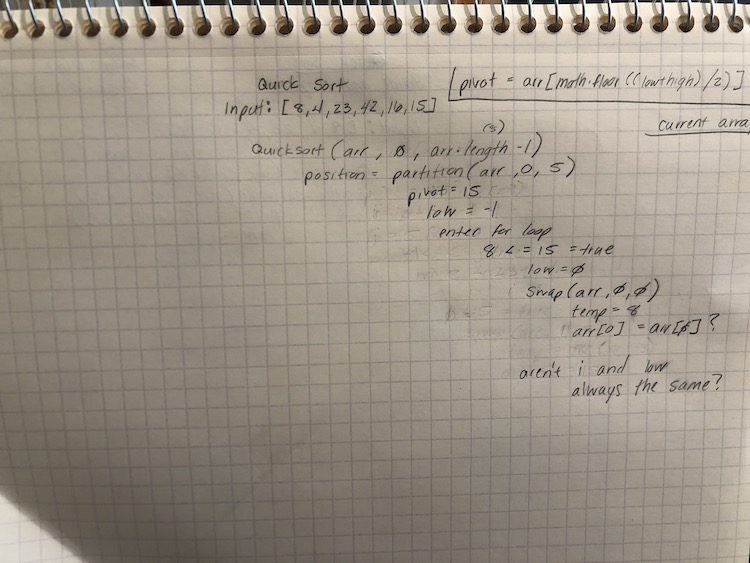 Quick Sort
pivot = arr[math.floor((low+high)/2)]
Input: [8,4,23,42,16,15]
current arra
(5)
Quicksort (arr, 0, arr.length -1)
position = partition(arr, 0, 5)
pivot = 15
low = -1
enter for loop
8 <= 15 = true
low = 0
Swap(arr, 0, 0)
temp = 8
arr[0] = arr[0] ?
aren't i and low
always the same?